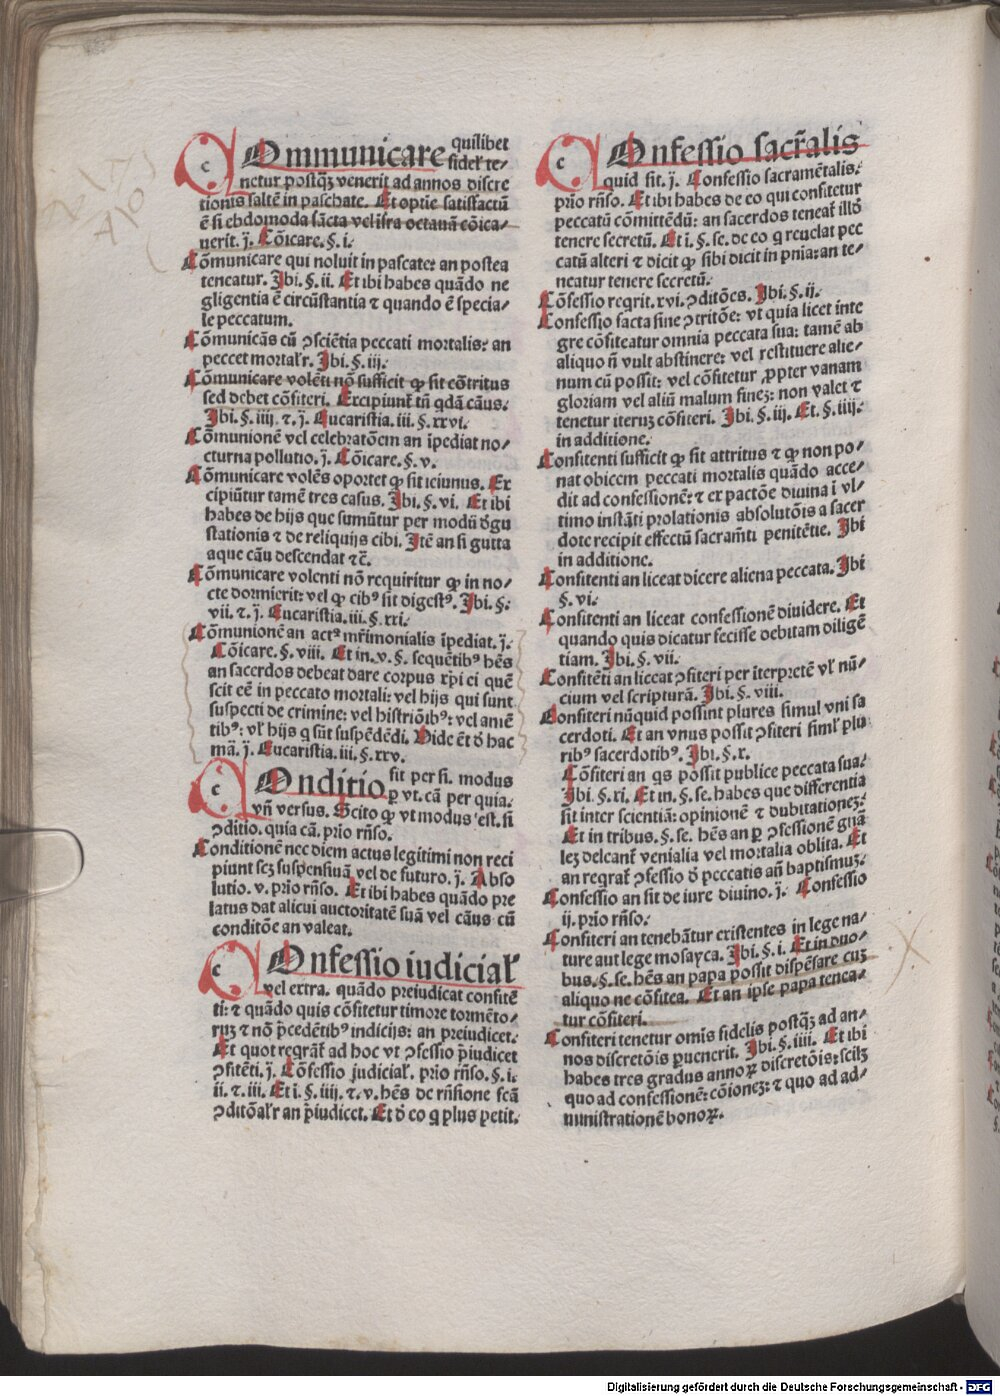 COmmunicare quilibet
fidel' te⸗
netur postq̄ꝫ venerit ad annos discre
tionis saltē in paschate. Et optie satisfactū
ē si ebdomoda sācta vel ifra octauā cōica⸗
uerit. j. Cōicare. §. i.
Cōmunicare qui noluit in pascate: an postea
teneatur. Ibi. §. ii. Et ibi habes quādo ne
gligentia ē circūstantia ⁊ quando ē specia⸗
le peccatum.
Cōmunicās cū ꝯsciētia peccati mortalis: an
peccet mortal'r. Ibi. §. iij.
Cōmunicare volēti nō sufficit ꝙ sit cōtritus
sed debet cōfiteri. Excipiunt' tn̄ qdā cāus.
Ibi. §. iiij. ⁊. j. Eucaristia. iii. §. xxvi.
Cōmunionē vel celebratōem an īpediat no⸗
cturna pollutio. j. Cōicare. §. v.
Cōmunicare volēs oportet ꝙ sit ieiunus. Ex
cipiūtur tamē tres casus. Ibi. §. vi. Et ibi
habes de hijs que sumūtur per modū d'gu
stationis ⁊ de reliquijs cibi. Itē an si gutta
aque cāu descendat ⁊c̄.
Cōmunicare volenti nō requiritur ꝙ in no⸗
cte dormierit: vel ꝙ cibꝰ sit digestꝰ. Ibi. §.
vii. ⁊. j. Eucaristia. iii. §. xxi.
Cōmunionē an actꝰ mr̄imonialis īpediat. j.
Cōicare. §. viii. Et in. v. §. sequētibꝰ hēs
an sacerdos debeat dare corpus xp̄i ei quē
scit eē in peccato mortali: vel hijs qui sunt
suspecti de crimine: vel histriōibꝰ: vel amē
tibꝰ: vl' hijs q sūt suspēdēdi. Vide ēt d' hac
mā. j. Eucaristia. iii. §. xxv.
COnditio sit per si. modus
ꝑ vt. cā per quia.
vn̄ versus. Scito ꝙ vt modus est. si
ꝯditio. quia cā. prio rn̄so.
Conditionē nec diem actus legitimi non reci
piunt scꝫ suspensiuā vel de futuro. j. Abso
lutio. v. prio rn̄so. Et ibi habes quādo pre
latus dat alicui auctoritatē suā vel cāus cū
conditōe an valeat.
COnfessio iudicial'
vel extra. quādo preiudicat confitē
ti: ⁊ quādo quis cōfitetur timore tormēto⸗
ruꝫ ⁊ nō p̄cedētibꝰ indicijs: an preiudicet.
Et quot reqrāt' ad hoc vt ꝯfessio p̄iudicet
ꝯfitēti. j. Cōfessio judicial'. prio rn̄so. §. i.
ii. ⁊. iii. Et i. §. iiij. ⁊. v. hēs de rn̄sione fcā
ꝯditōal'r an p̄iudicet. Et d' eo q plus petit.
COnfessio sacr̄alis
quid sit. j. Confessio sacramētalis.
prio rn̄so. Et ibi habes de eo qui confitetur
peccatū cōmittēdū: an sacerdos teneat' illd'
tenere secretū. Et i. §. se. de eo q reuelat pec
catū alteri ⁊ dicit ꝙ sibi dicit in pn̄ia: an te⸗
neatur tenere secretū.
Cōfessio reqrit. xvi. ꝯditōes. Ibi. §. ij.
Confessio facta sine ꝯtritōe: vt quia licet inte
gre cōfiteatur omnia peccata sua: tamē ab
aliquo n̄ vult abstinere: vel restituere alie⸗
num cū possit: vel cōfitetur ꝓpter vanam
gloriam vel aliū malum fineꝫ: non valet ⁊
tenetur iteruꝫ cōfiteri. Ibi. §. iij. Et. §. iiij.
in additione.
Confitenti sufficit ꝙ sit attritus ⁊ ꝙ non po⸗
nat obicem peccati mortalis quādo acce⸗
dit ad confessionē: ⁊ ex pactōe diuina ī vl⸗
timo instāti prolationis absolutōis a sacer
dote recipit effectū sacram̄ti penitētie. Ibi
in additione.
Confitenti an liceat dicere aliena peccata. Ibi
§. vi.
Confitenti an liceat confessionē diuidere. Et
quando quis dicatur fecisse debitam diligē
tiam. Ibi. §. vii.
Confitēti an liceat ꝯfiteri per īterpretē vl' nū⸗
cium vel scripturā. Ibi. §. viii.
Confiteri nūquid possint plures simul vni sa
cerdoti. Et an vnus possit ꝯfiteri siml' plu
ribꝰ sacerdotibꝰ. Ibi. §. x.
Cōfiteri an qs possit publice peccata sua.
Ibi. §. xi. Et in. §. se. habes que differentia
sit inter scientiā: opinionē ⁊ dubitationeꝫ.
Et in tribus. §. se. hēs an ꝑ ꝯfessionē gn̄a
leꝫ deleant' venialia vel mortalia oblita. Et
an reqrat' ꝯfessio d' peccatis an̄ baptismuꝫ.
Confessio an sit de iure diuino. j. Confessio
ij. prio rn̄so.
Confiteri an tenebātur existentes in lege na⸗
ture aut lege mosayca. Ibi. §. i. Et in duo⸗
bus. §. se. hēs an papa possit dispēsare cuꝫ
aliquo ne cōfitea. Et an ipse papa tenea⸗
tur cōfiteri.
Confiteri tenetur omīs fidelis postq̄ꝫ ad an⸗
nos discretōis ꝑuenerit. Ibi. §. iiij. Et ibi
habes tres gradus annoꝝ discretōis: scilꝫ
quo ad confessionē: cōioneꝫ: ⁊ quo ad ad⸗
ministrationē bonoꝝ.
Digitalisierung gefördert durch die Deutsche Forschungsgemeinschaft - DFG